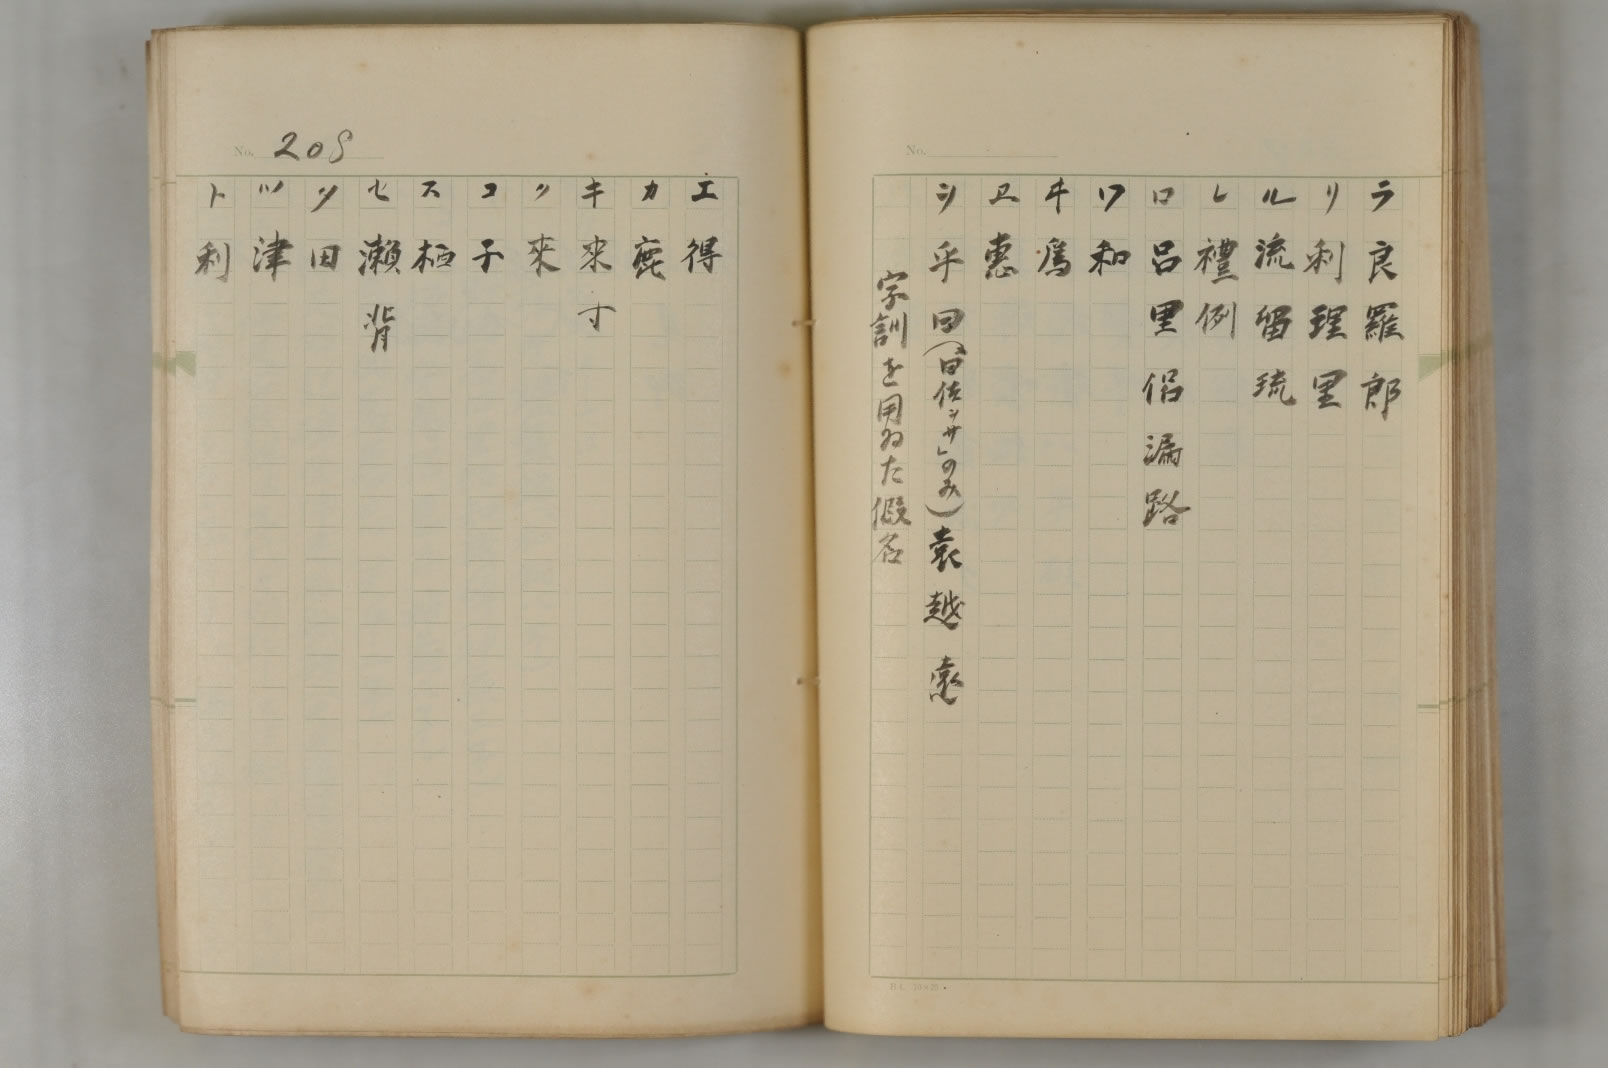 No.
ラ 良 羅 郎
リ 利 理 里
ル 流 留 琉
レ 禮 例
ロ 呂 里 侶 漏 路
ワ 和
ヰ 爲
ヱ 惠
ヲ 乎 曰(「曰佐ヲサ」のみ)袁 越 遠
字訓を用ゐた假名
B4. 10×25
No. 208
エ 得
カ 鹿
キ 來 寸
ク 來
コ 子
ス 栖
セ 瀬 背
タ 田
ツ 津
ト 利